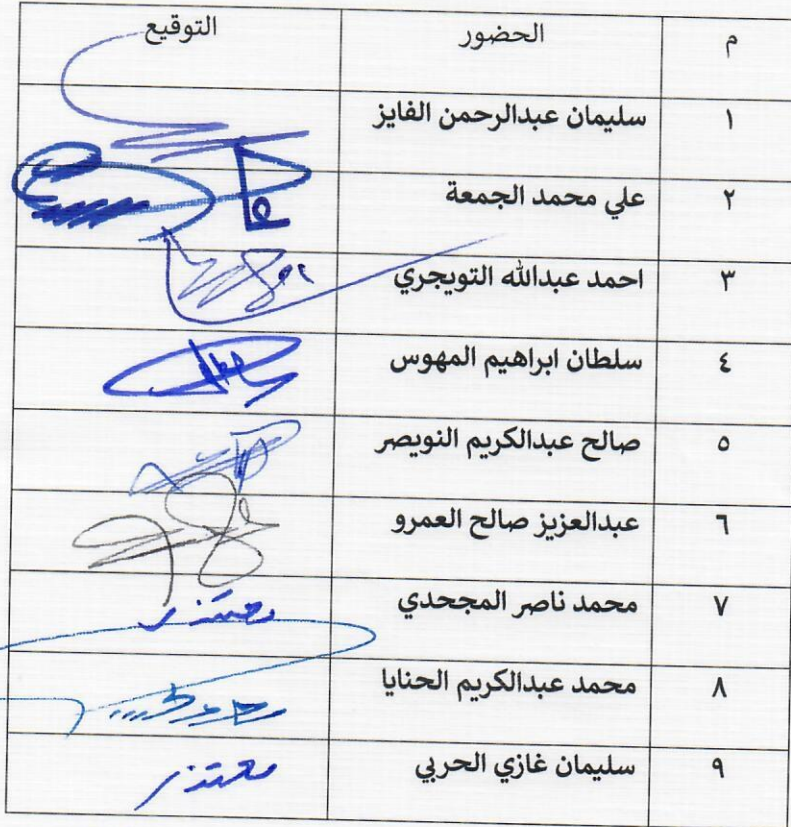 م الحضور التوقيع
١ سليمان عبدالرحمن الفايز
٢ علي محمد الجمعة
٣ احمد عبدالله التويجري
٤ سلطان ابراهيم المهوس
٥ صالح عبدالكريم النويصر
٦ عبدالعزيز صالح العمرو
٧ محمد ناصر المجحدي معتذر
٨ محمد عبدالكريم الحنايا
٩ سليمان غازي الحربي معتذر